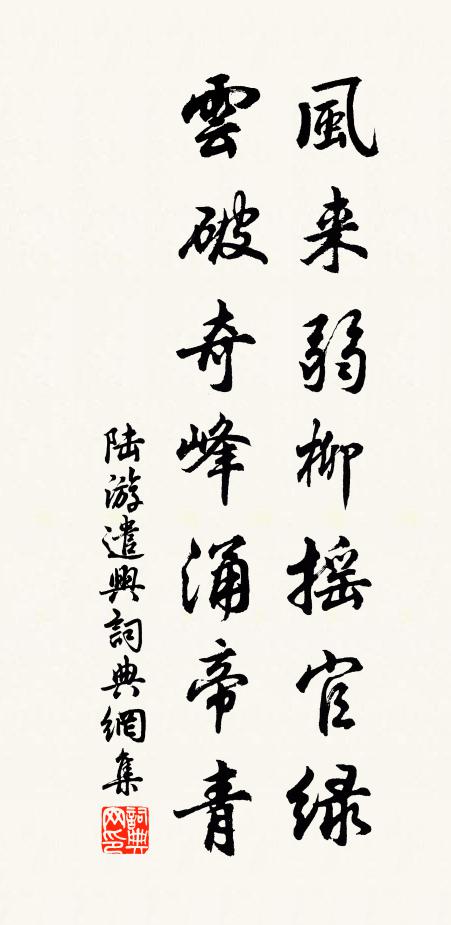 風来弱柳摇官綠
雲破奇峰涌帝青
陆游遣興詞典網集
詞典网印